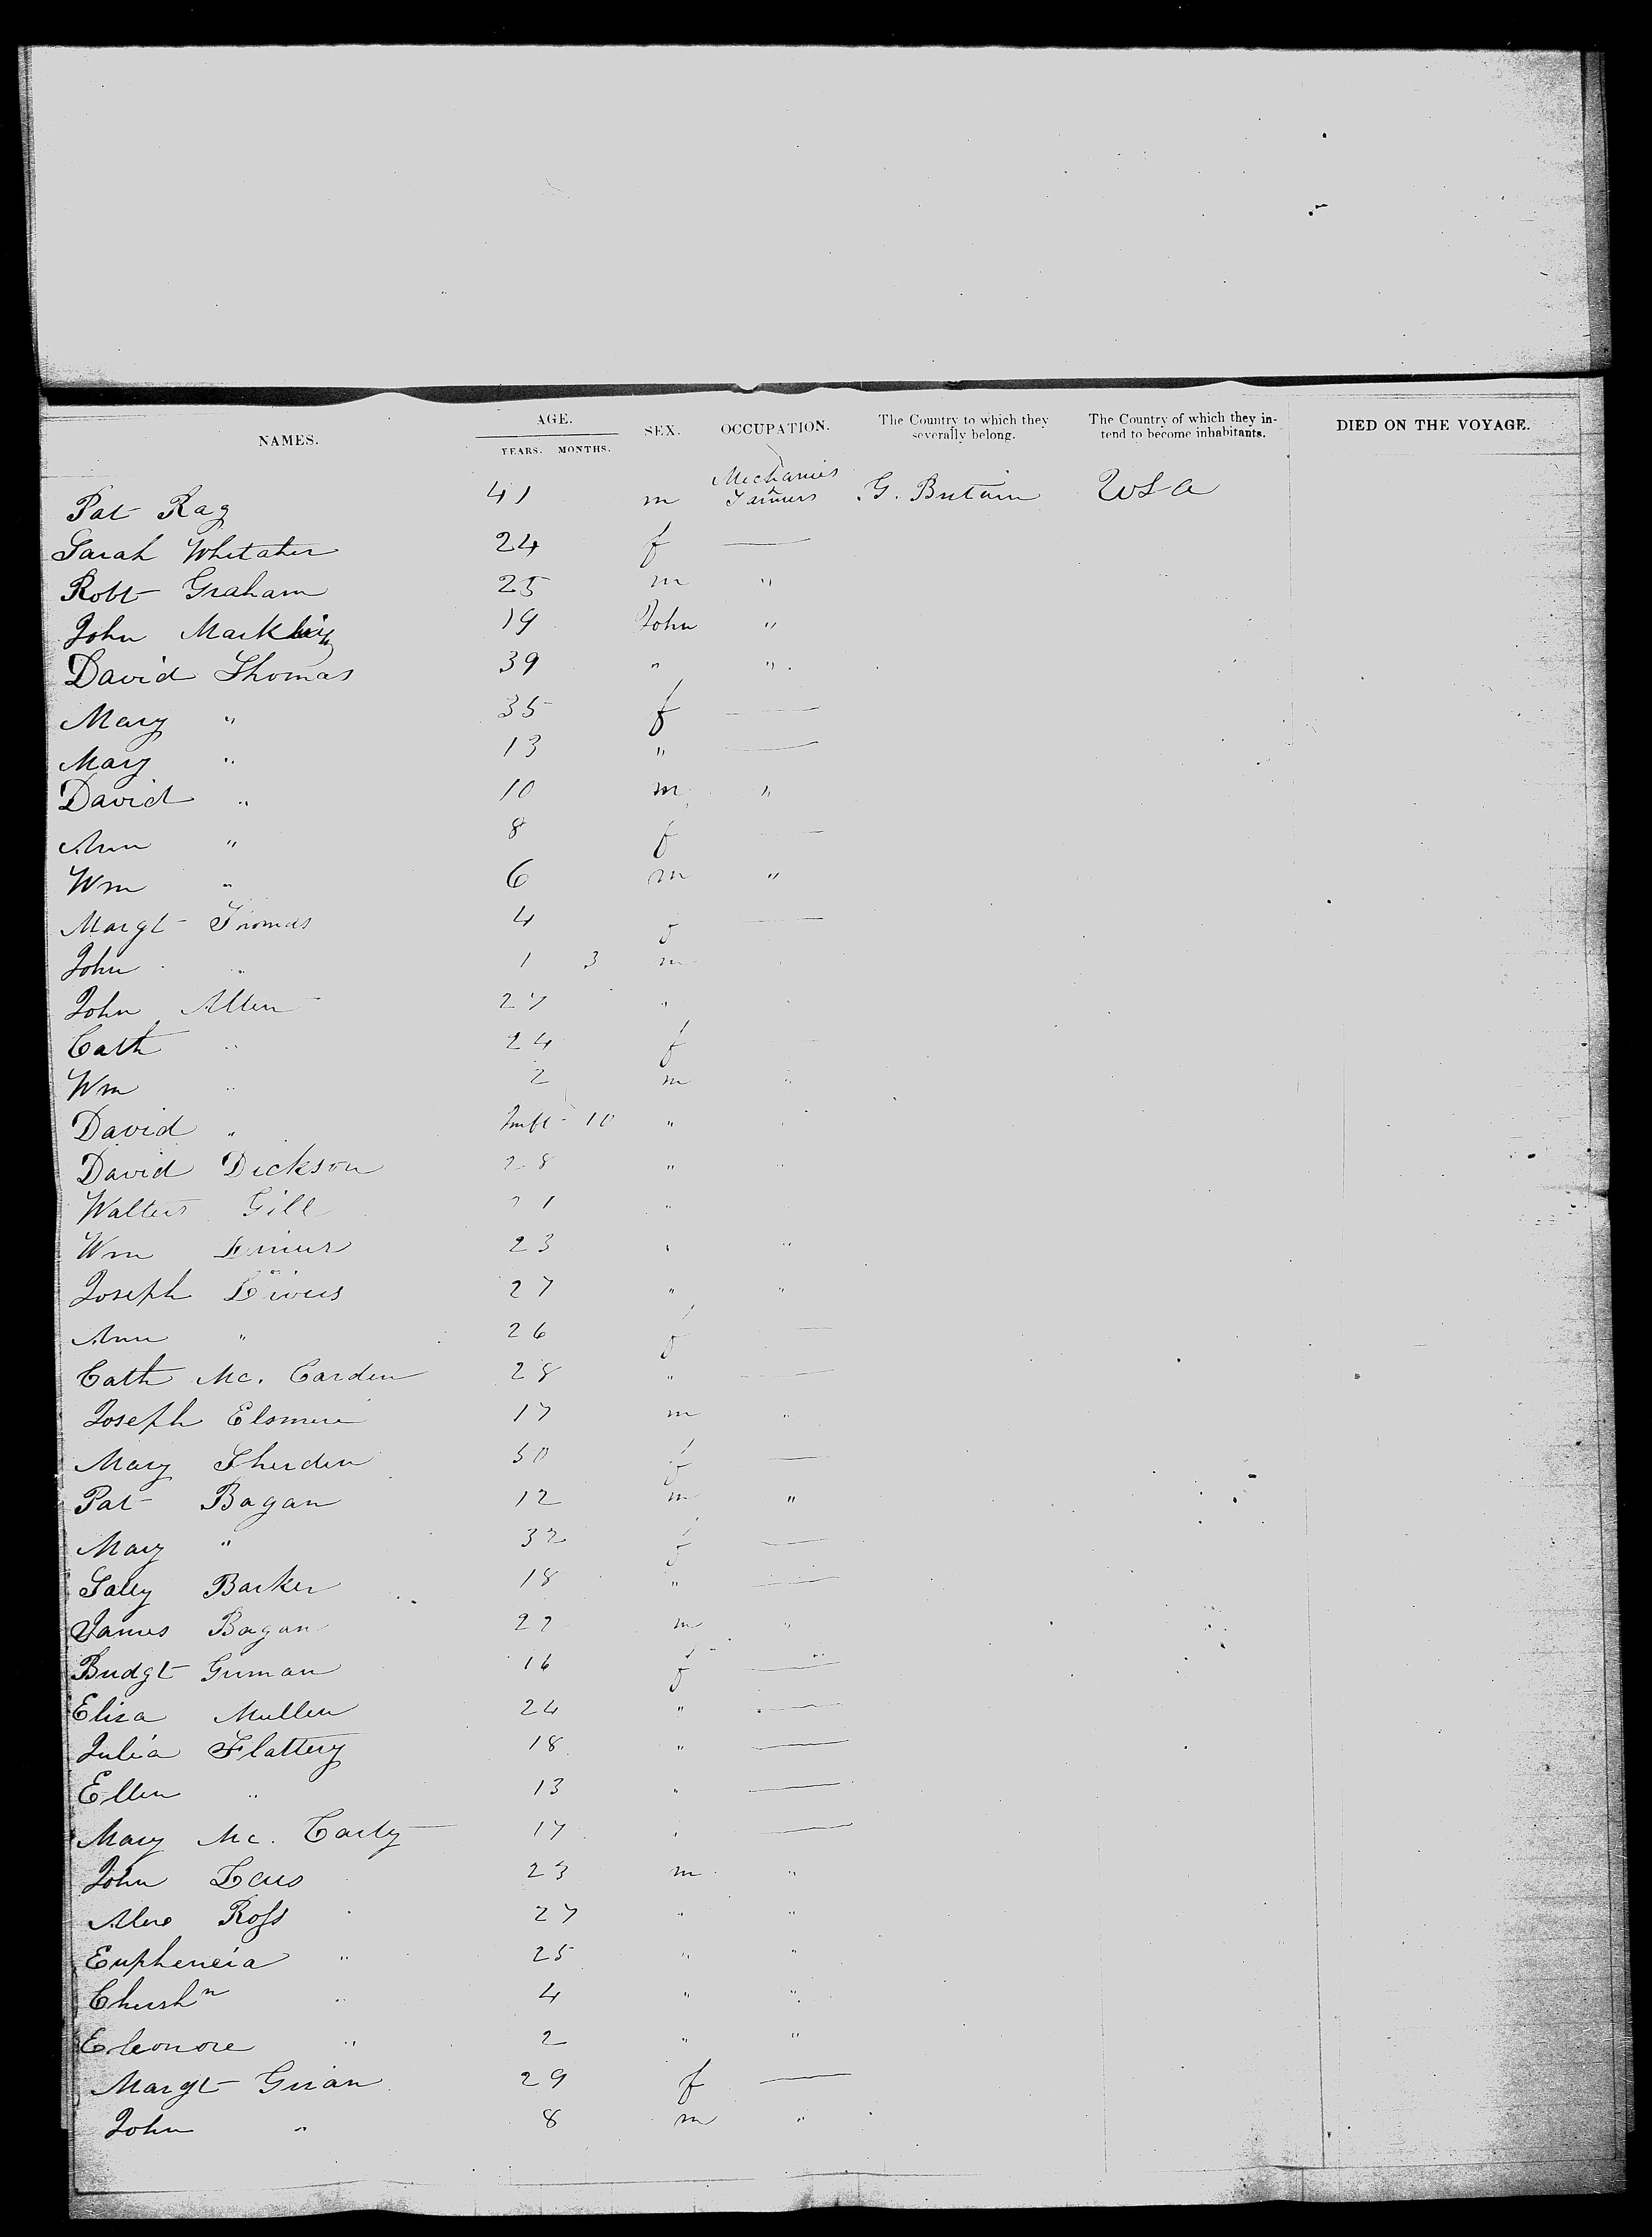 NAMES. AGE. SEX. OCCUPATION. The Country to which they severally belong. The Country of which they intend to become inhabitants. DIED ON THE VOYAGE.
YEARS. MONTHS.
Mechanics
Pat Ray 41 m Farmers G. Britain USA
Sarah Whitaker 24 f —
Robt Graham 25 m "
John 19 John "
David Thomas 39 " "
Mary " 35 f —
Mary " 13 " —
David " 10 m "
Ann " 8 f —
Wm " 6 m "
Margt Thomas 4 f —
John " 1 3 m
John Allen 27 "
Cath " 24 f
Wm " 2 m "
David " Inft 10 "
David Dickson 28 " "
Walter Gill 21 "
Wm 23 " "
Joseph 27 " "
Ann " 26 f —
Cath Mc. Carden 28 " —
Joseph Elsmere 17 m "
Mary Sherden 50 f —
Pat Bagan 12 m "
Mary " 32 f —
Sally Barker 18 " —
James Bagan 22 m "
Bridgt 16 f —
Eliza Mullen 24 " —
Julia Flattery 18 " —
Ellen " 13 " —
Mary Mc. Carty 17 " —
John 23 m "
Ross 27 " "
Eupheneia " 25 " "
" 4 " "
Eleonore " 2 " "
Margt 29 f —
John " 8 m "